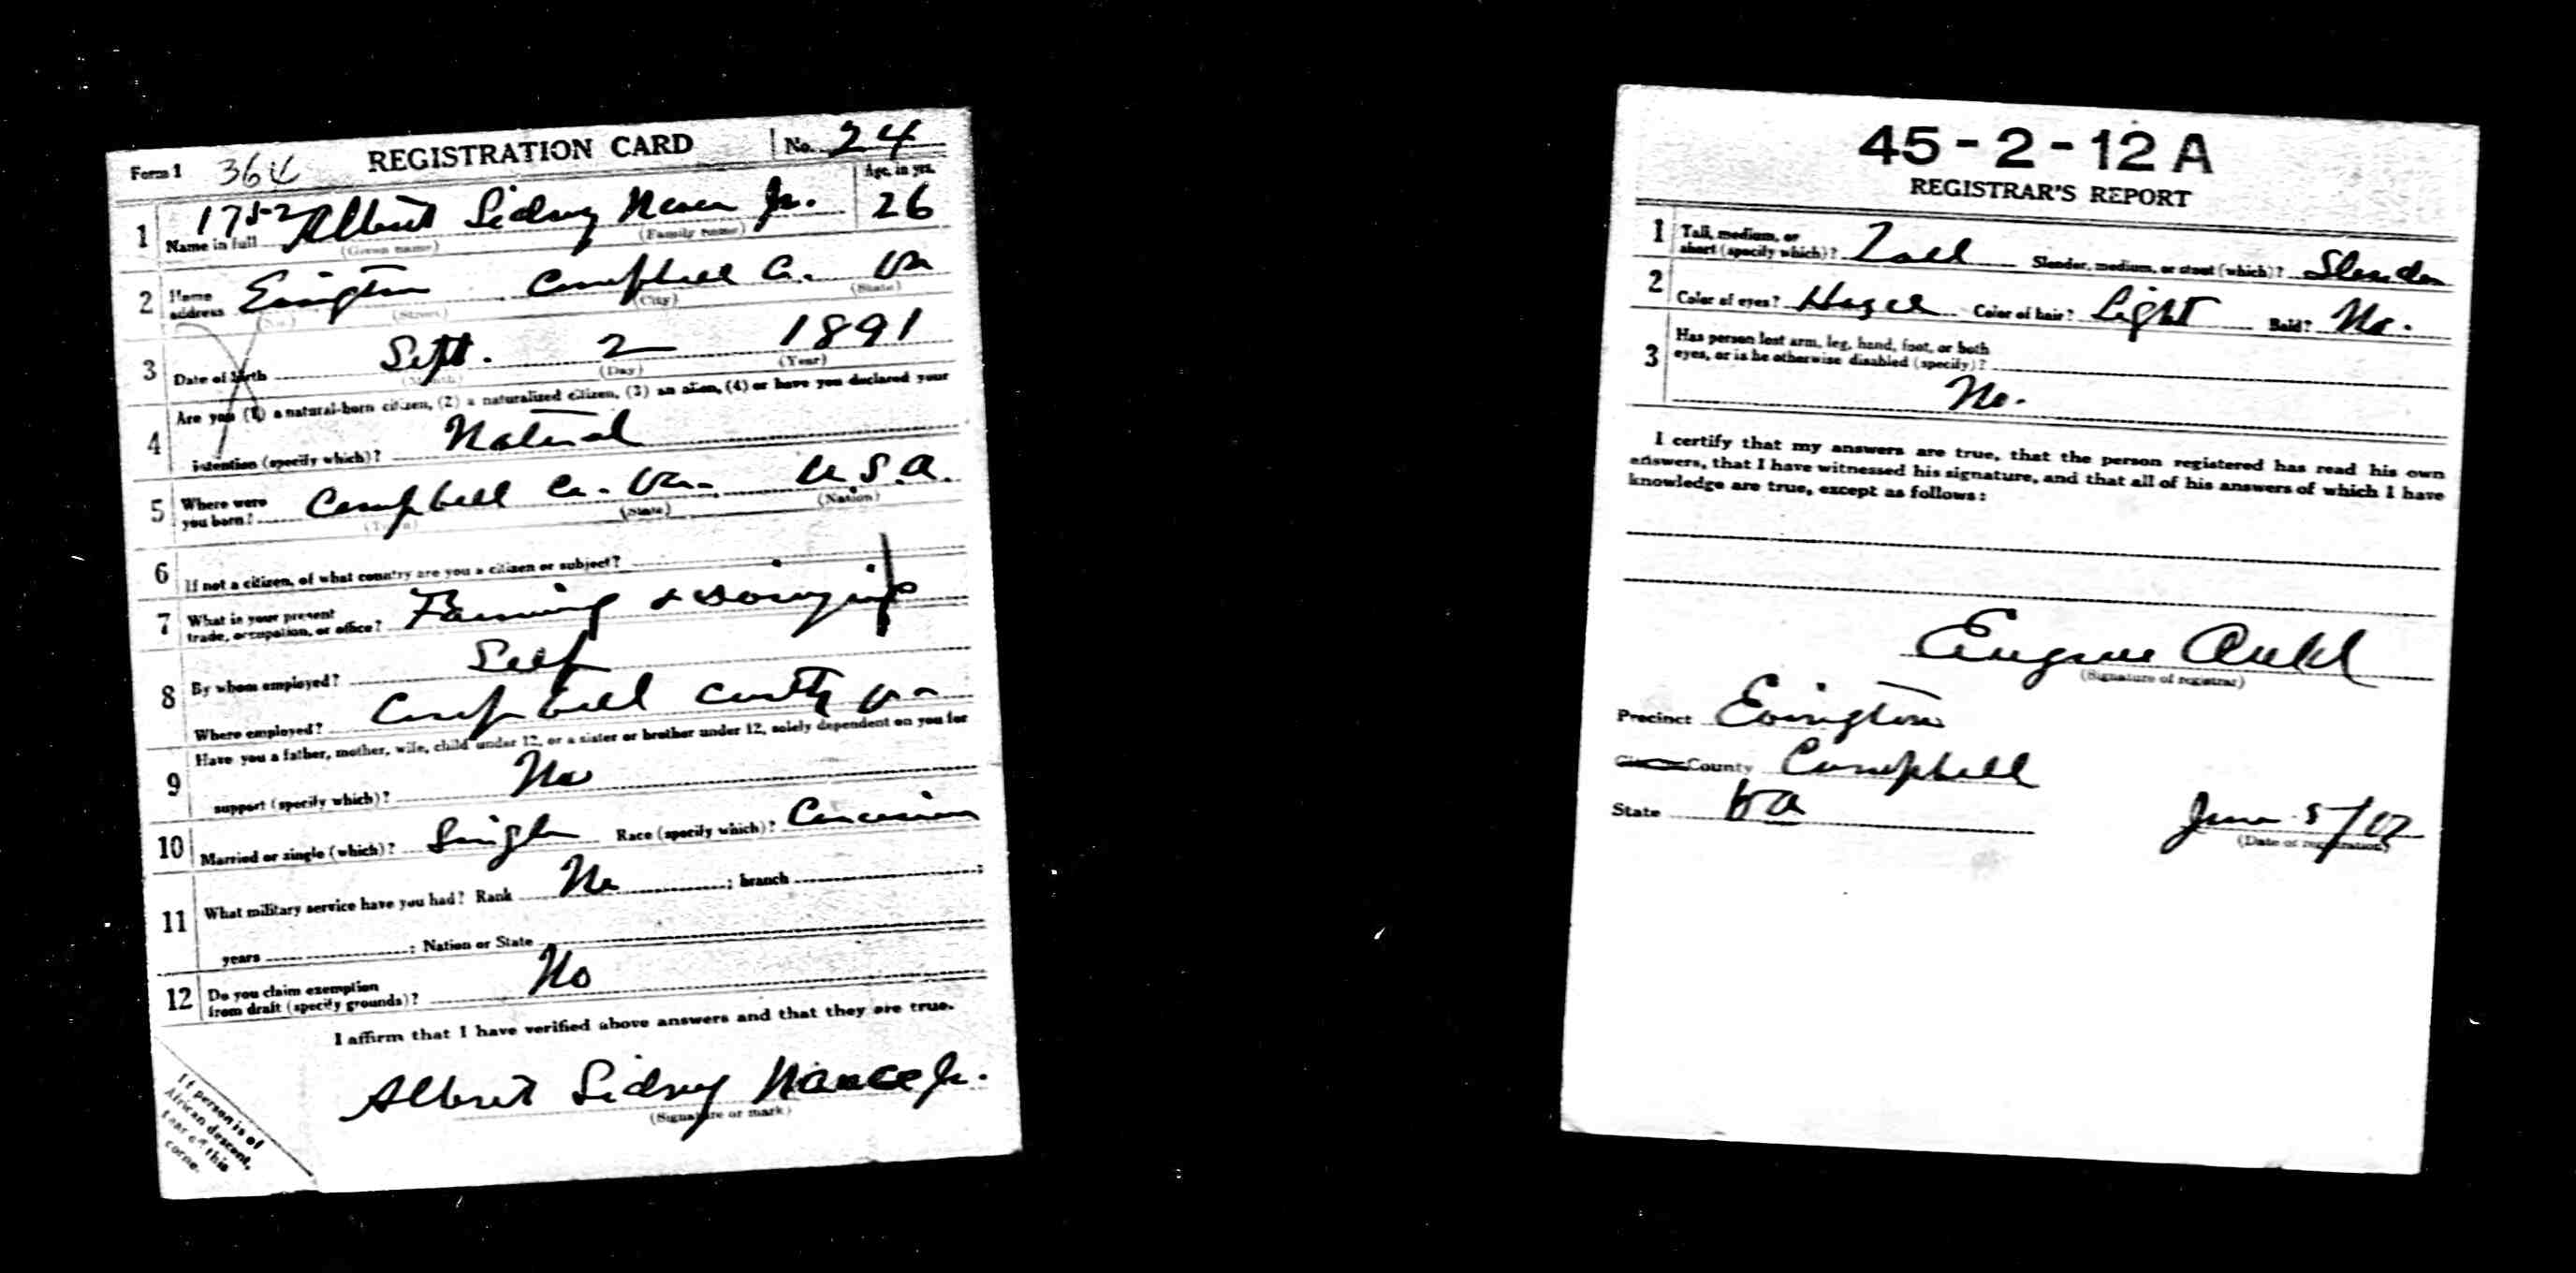 Form 1 364 REGISTRATION CARD No. 24
Age, in yrs.
1 1752 Albert Sidney Nance Jr. 26
Name in full (Given name) (Family name)
2 Home address Evington Campbell Co. Va
(No.) (Street) (City) (State)
3 Date of birth Sept. 2 1891
(Month) (Day) (Year)
4 Are you (1) a natural-born citizen, (2) a naturalized citizen, (3) an alien, (4) or have you declared your
intention (specify which)? Natural
5 Where were you born? Campbell Co. Va. U.S.A.
(Town) (State) (Nation)
6 If not a citizen, of what country are you a citizen or subject?
7 What is your present trade, occupation, or office? Farming &
8 By whom employed? Self
Where employed? Campbell County Va
9 Have you a father, mother, wife, child under 12, or a sister or brother under 12, solely dependent on you for
support (specify which)? No
10 Married or single (which)? Single Race (specify which)? Caucasian
11 What military service have you had? Rank No ; branch ;
years ; Nation or State
12 Do you claim exemption from draft (specify grounds)? No
I affirm that I have verified above answers and that they are true.
Albert Sidney Nance Jr.
(Signature or mark)
If person is of
African descent,
tear off this
corner.
45-2-12 A
REGISTRAR'S REPORT
1 Tall, medium, or short (specify which)? Tall Slender, medium, or stout (which)? Slender
2 Color of eyes? Hazel Color of hair? Light Bald? No.
3 Has person lost arm, leg, hand, foot, or both
eyes, or is he otherwise disabled (specify)?
No.
I certify that my answers are true, that the person registered has read his own
answers, that I have witnessed his signature, and that all of his answers of which I have
knowledge are true, except as follows:
Eugene Auld
(Signature of registrar)
Precinct Evington
City or County Campbell
State Va June 5/17
(Date of registration)